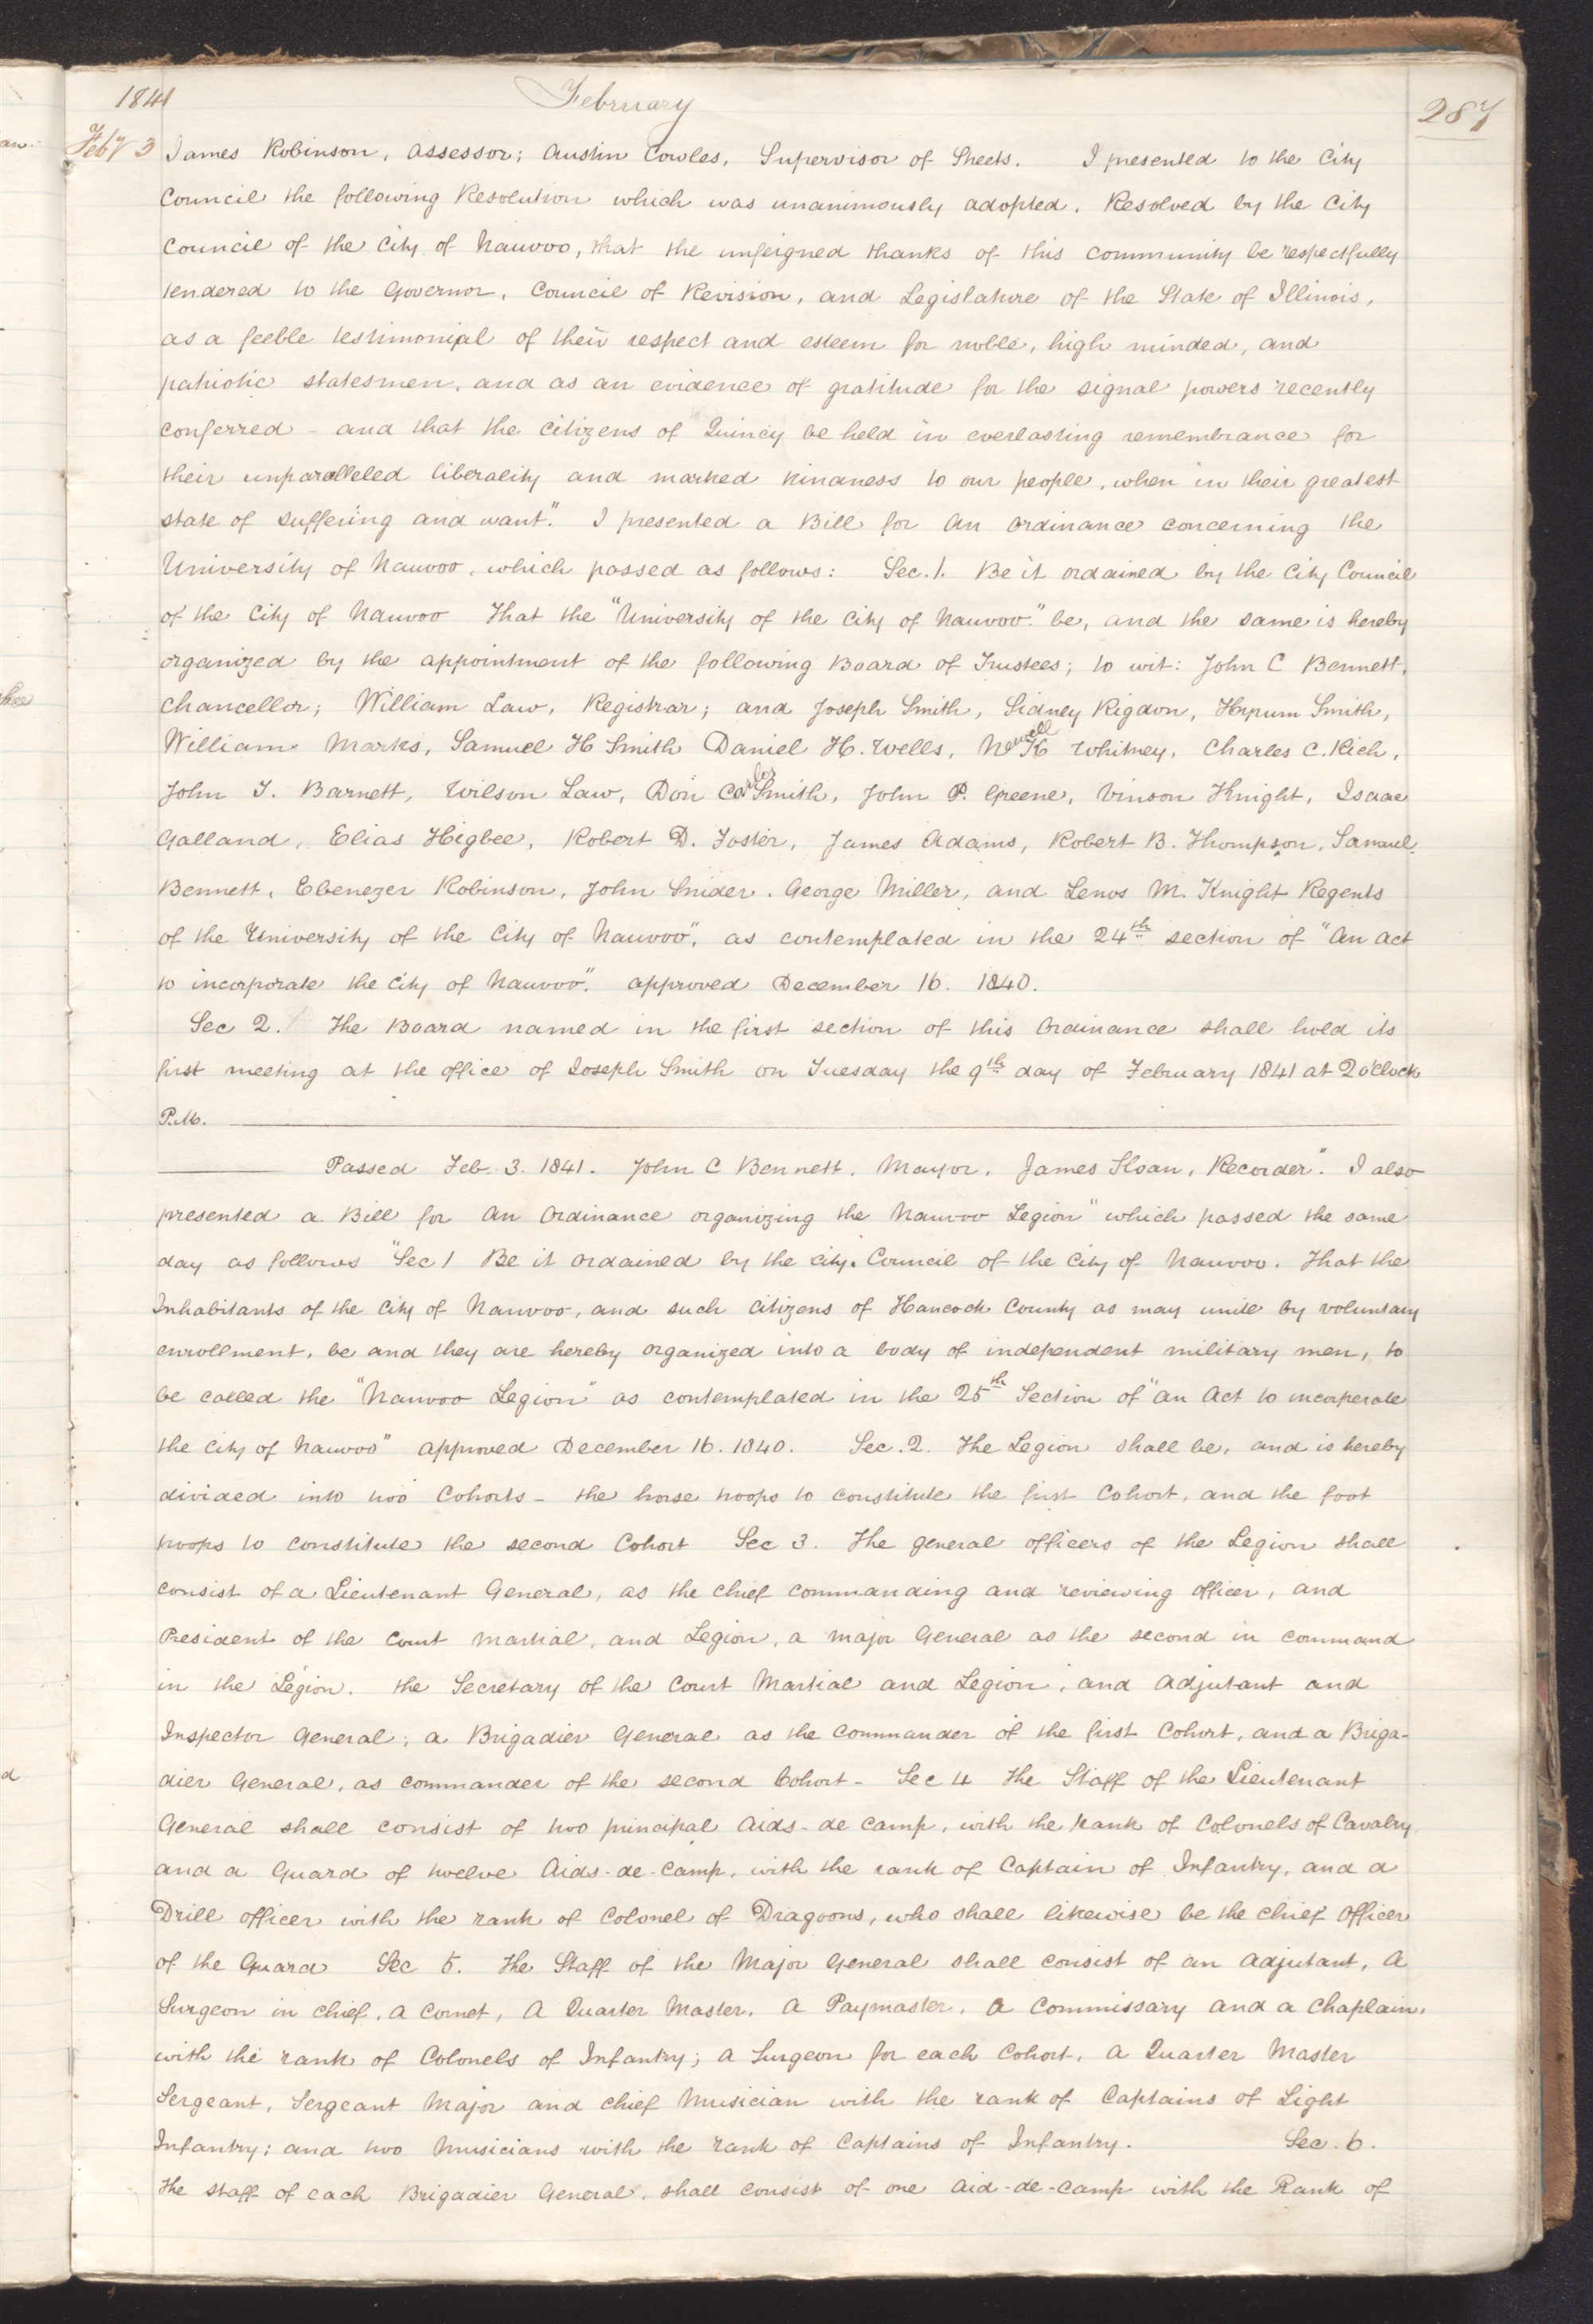 1841 February 287
Feby 3 James Robinson, assessor; Austin Cowles, Supervisor of Streets. I presented to the City
Council the following Resolution which was unanimously adopted. Resolved by the City
Council of the City of Nauvoo, that the unfeigned thanks of this community be respectfully
tendered to the Governor, Council of Revision, and Legislature of the State of Illinois,
as a feeble testimonial of their respect and esteem for noble, high minded, and
patriotic statesmen, and as an evidence of gratitude for the signal powers recently
conferred - and that the citizens of Quincy be held in everlasting remembrance for
their unparalleled liberality and marked kindness to our people, when in their greatest
state of suffering and want." I presented a Bill for an ordinance concerning the
University of Nauvoo, which passed as follows: Sec. 1. Be it ordained by the City Council
of the City of Nauvoo That the "University of the City of Nauvoo" be, and the same is hereby
organized by the appointment of the following Board of Trustees; to wit: John C Bennett,
Chancellor; William Law, Registrar; and Joseph Smith, Sidney Rigdon, Hyrum Smith,
William Marks, Samuel H Smith Daniel H. Wells, Newell K Whitney, Charles C. Rich,
John T. Barnett, Wilson Law, Don Carlos Smith, John P. Greene, Vinson Knight, Isaac
Galland, Elias Higbee, Robert D. Foster, James Adams, Robert B. Thompson, Samuel
Bennett, Ebenezer Robinson, John Snider. George Miller, and Lenos M. Knight Regents
of the University of the City of Nauvoo", as contemplated in the 24th section of "An act
to incorporate the city of Nauvoo", approved December 16. 1840.
Sec 2. The Board named in the first section of this Ordinance shall hold its
first meeting at the office of Joseph Smith on Tuesday the 9th day of February 1841 at 2 o'clock
P.M.
Passed Feb. 3. 1841. John C Bennett, Mayor, James Sloan, Recorder". I also
presented a Bill for an Ordinance organizing the Nauvoo Legion" which passed the same
day as follows "Sec 1 Be it ordained by the city Council of the City of Nauvoo. That the
Inhabitants of the City of Nauvoo, and such citizens of Hancock County as may unite by voluntary
enrollment, be and they are hereby organized into a body of independent military men, to
be called the "Nauvoo Legion" as contemplated in the 25th Section of "an Act to incorperate
the City of Nauvoo" approved December 16. 1840. Sec. 2. The Legion shall be, and is hereby
divided into two Cohorts - the horse troops to constitute the first Cohort, and the foot
troops to constitute the second Cohort Sec 3. The general officers of the Legion shall
consist of a Lieutenant General, as the chief commanding and reviewing officer, and
President of the Court Martial, and Legion, a major General as the second in command
in the Legion. the Secretary of the Court Martial and Legion, and adjutant and
Inspector General; a Brigadier General as the Commander of the first Cohort, and a Briga-
dier General, as commander of the second Cohort - Sec 4 The Staff of the Lieutenant
General shall consist of two principal Aids-de camp, with the Rank of Colonels of Cavalry
and a Guard of twelve Aids-de-Camp, with the rank of Captain of Infantry, and a
Drill officer with the rank of Colonel of Dragoons, who shall likewise be the chief Officer
of the Guard Sec 5. The Staff of the Major General shall consist of an Adjutant, A
Surgeon in chief, a Cornet, A Quarter Master, A Paymaster, A Commissary and a Chaplain,
with the rank of Colonels of Infantry; A Surgeon for each Cohort, A Quarter Master
Sergeant, Sergeant Major and chief Musician with the rank of Captains of Light
Infantry; and two Musicians with the rank of Captains of Infantry. Sec. 6.
The staff of each Brigadier General, shall consist of one Aid-de-Camp with the Rank of